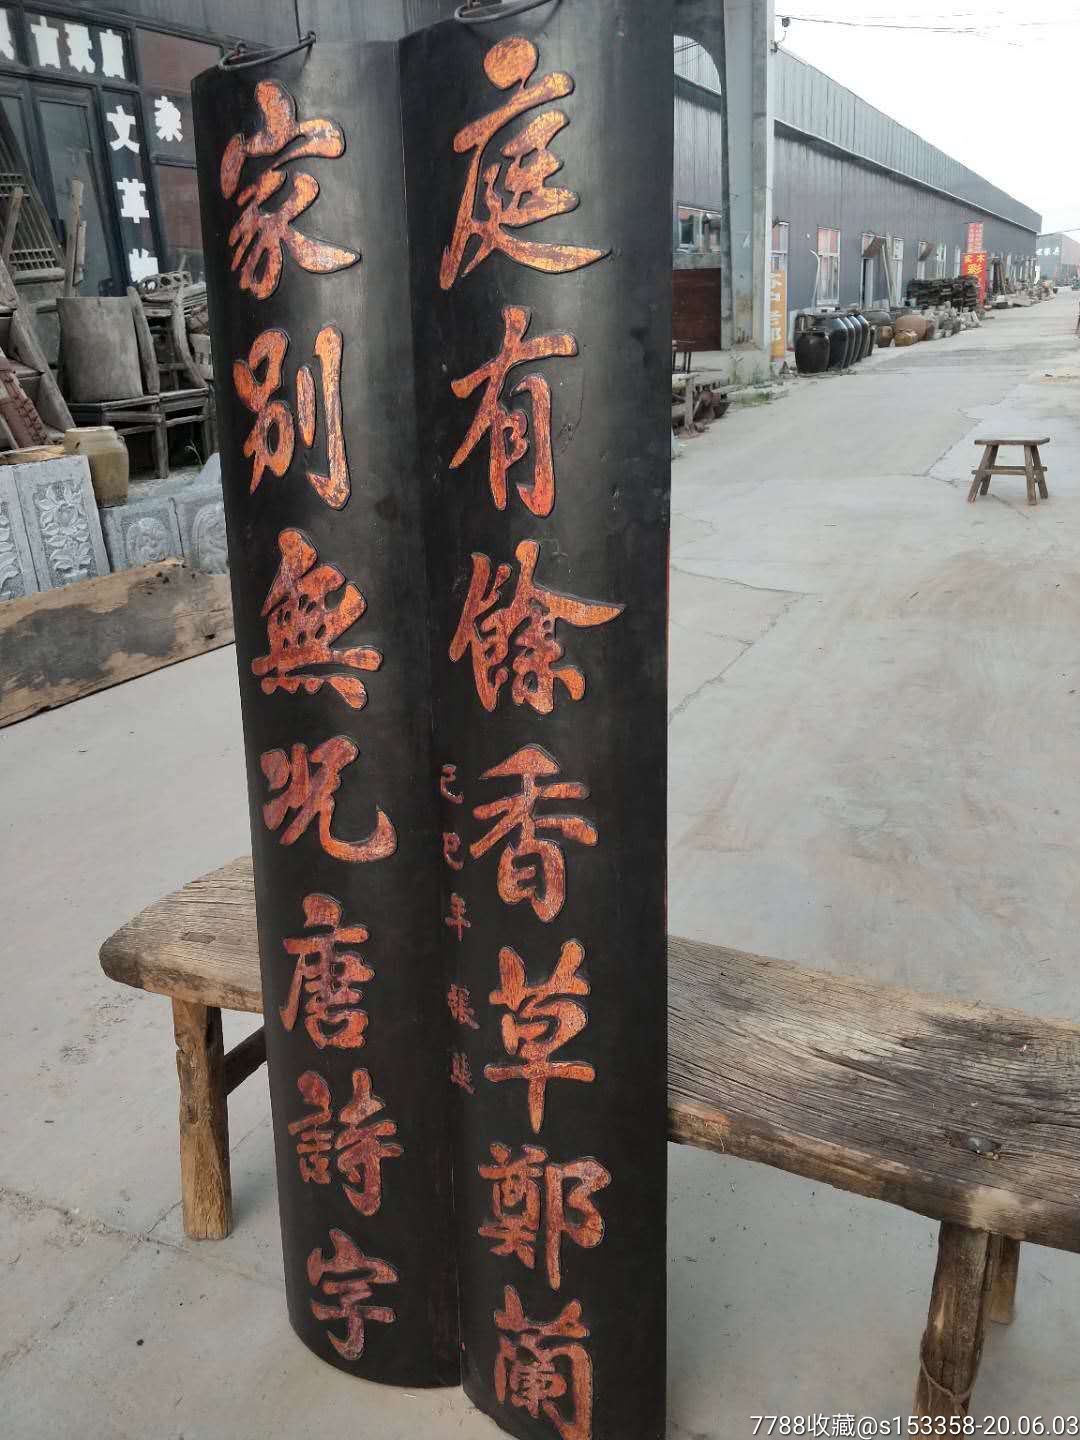 庭有餘香草鄭蘭
家別無況唐詩字
己巳年
文革
7788收藏@s153358-20.06.03